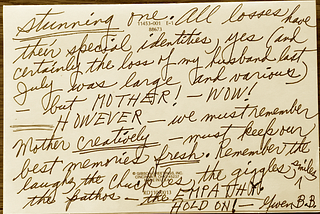 stunning one. All losses have
11453-001 L-1
88671
their special identities, yes (and
certainly the loss of my husband last
July was large (and various)
but MOTHER! — WOW!
HOWEVER — we must remember
Mother creatively — must keep our
best memories fresh. Remember the
laughs, the chuckles, the giggles, smiles
the pathos — the EMPATHY.
HOLD ON! — Gwen B.B.